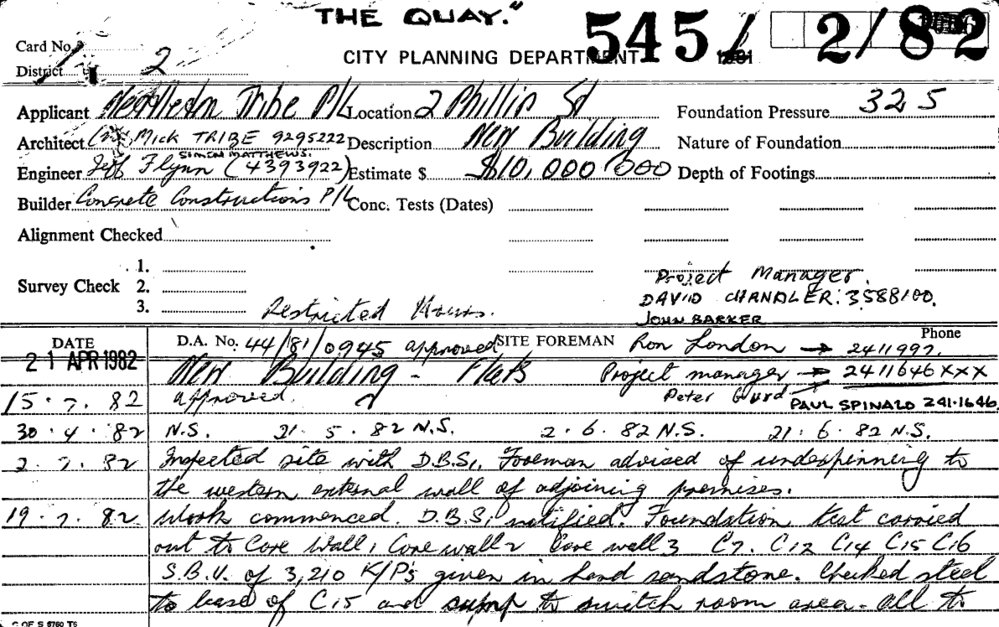 THE QUAY."
545/ 2/82
Card No.
District 2
CITY PLANNING DEPARTMENT 1981
Applicant Tribe P/L Location 2 Phillip St Foundation Pressure 325
Architect Mick TRIBE 9295222 Description New Building Nature of Foundation
SIMON MATTHEWS.
Engineer Jeff Flynn (4393922) Estimate $ $10,000 000 Depth of Footings
Builder Concrete Constructions P/L Conc. Tests (Dates)
Alignment Checked
Survey Check 1.
2.
3.
Project Manager.
DAVID CHANDLER: 3588100.
JOHN BARKER
Restricted Hours.
DATE D.A. No. 44/81/0945 approved SITE FOREMAN Ron London → 2411997. Phone
21 APR 1982 New Building - Flats Project manager → 2411646 XXX
15.7.82 approved. Peter Gurd PAUL SPINAZO 241.1646
30.4.82 N.S. 31.5.82 N.S. 2.6.82 N.S. 21.6.82 N.S.
2.7.82 Inspected site with D.B.S., Foreman advised of underpinning to
the western external wall of adjoining premises.
19.7.82 Work commenced. D.B.S, notified. Foundation test carried
out to Core Wall 1 Core wall 2 Core wall 3 C7. C12 C14 C15 C16
S.B.V. of 3,210 K/P's given in hard sandstone. Checked steel
to base of C15 and sump to switch room area. All to
C OF S 8760 T6